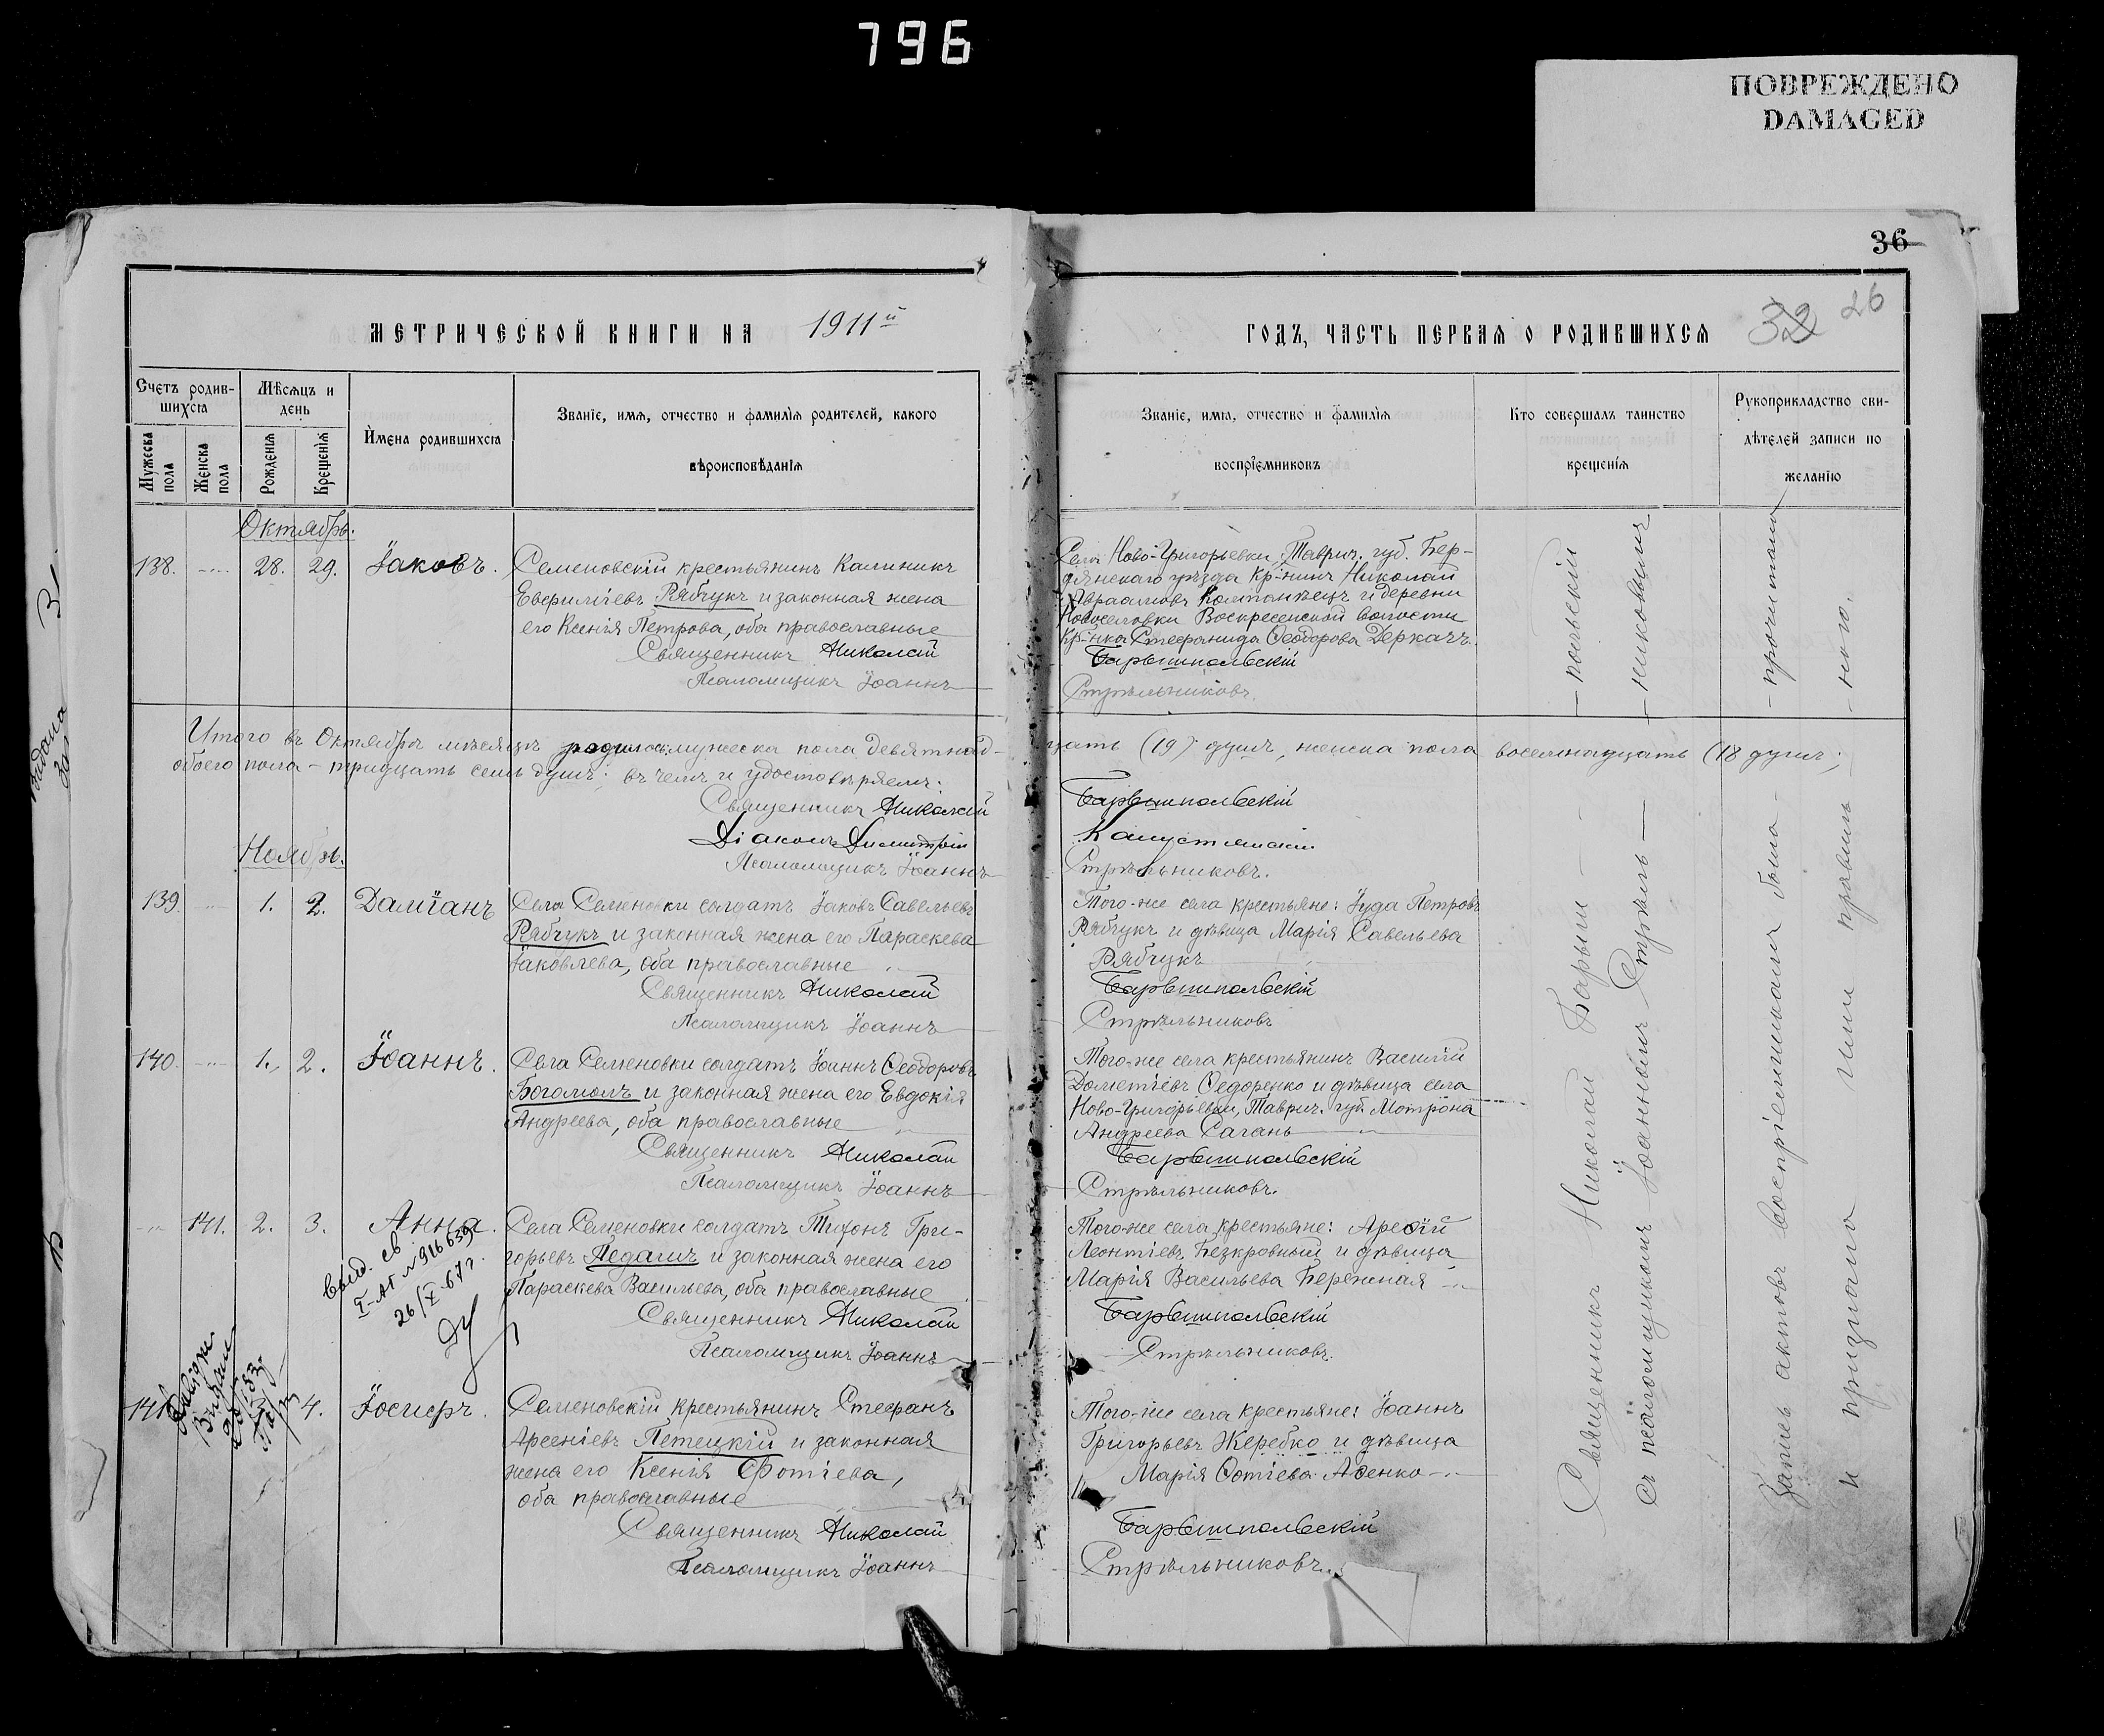 796
ПОВРЕЖДЕНО
DAMAGED
36
32 26
МЕТРИЧЕСКОЙ КНИГИ НА 1911й
ГОДЪ, ЧАСТЬ ПЕРВАЯ О РОДИВШИХСЯ
Счетъ родив-
шихся
Мѣсяцъ и
день
Мужеска пола
Женска пола
Рожденія
Крещенія
Имена родившихся
Званіе, имя, отчество и фамилія родителей, какого
вѣроисповѣданія
Званіе, имя, отчество и фамилія
воспріемниковъ
Кто совершалъ таинство
крещенія
Рукоприкладство сви-
дѣтелей записи по
желанію
Октябрь.
138. 28. 29. Іаковъ.
Семеновскій крестьянинъ Калиникъ
Евфиміевъ Рябчукъ и законная жена
его Ксенія Петрова, оба православные
Священникъ Николай
Псаломщикъ Іоаннъ
Села Ново-Григорьевки, Таврич. губ. Бер-
дянскаго уѣзда Кр-нинъ Николай
Авраамовъ Компанѣецъ и деревни
Новоселовки Воскресенской волости
Кр-нка Стефанида Ѳеодорова Деркачъ.
Барышпольскій
Стрѣльниковъ.
Итого въ Октябрѣ мѣсяцѣ родилось: мужеска пола девятнад-
цать (19) душъ, женска пола восемнадцать (18 душъ;
обоего пола – тридцать семь душъ; въ чемъ и удостовѣряемъ:
Священникъ Николай
Барышпольскій
Діаконъ Димитрій
Капустянскій
Псаломщикъ Іоаннъ
Стрѣльниковъ.
Ноябрь.
139. 1. 2. Даміанъ
Села Семеновки солдатъ Іаковъ Савельевъ
Рябчукъ и законная жена его Параскева
Іаковлева, оба православные
Священникъ Николай
Псаломщикъ Іоаннъ
Того-же села крестьяне: Іуда Петровъ
Рябчукъ и дѣвица Марія Савельева
Рябчукъ
Барышпольскій
Стрѣльниковъ
140. 1. 2. Іоаннъ.
Села Семеновки солдатъ Іоаннъ Ѳеодоровъ
Богомолъ и законная жена его Евдокія
Андреева, оба православные
Священникъ Николай
Псаломщикъ Іоаннъ
Того-же села крестьянинъ Василій
Дометіевъ Ѳедоренко и дѣвица села
Ново-Григорьевки, Таврич. губ. Мотрона
Андреева Сагань
Барышпольскій
Стрѣльниковъ.
141. 2. 3. Анна.
Выд. св
I-АГ № 916639
26/X-67г.
Села Семеновки солдатъ Тихонъ Гри-
горьевъ Педашъ и законная жена его
Параскева Васильева, оба православные
Священникъ Николай
Псаломщикъ Іоаннъ
Того-же села крестьяне: Арефій
Леонтіевъ Безкровный и дѣвица
Марія Васильева Бережная
Барышпольскій
Стрѣльниковъ.
4. Іосифъ.
Семеновскій крестьянинъ Стефанъ
Арсеніевъ Летецкій и законная
жена его Ксенія Фотіева,
оба православные
Священникъ Николай
Псаломщикъ Іоаннъ
Того-же села крестьяне: Іоаннъ
Григорьевъ Жеребко и дѣвица
Марія Фотіева
Барышпольскій
Стрѣльниковъ.
Священникъ Николай Барыш – – – польскій
Съ псаломщикомъ Іоанномъ Стрѣль – – никовымъ
Запись актовъ воспріемниками была – – прочитана
и признана ими правиль – – ною.